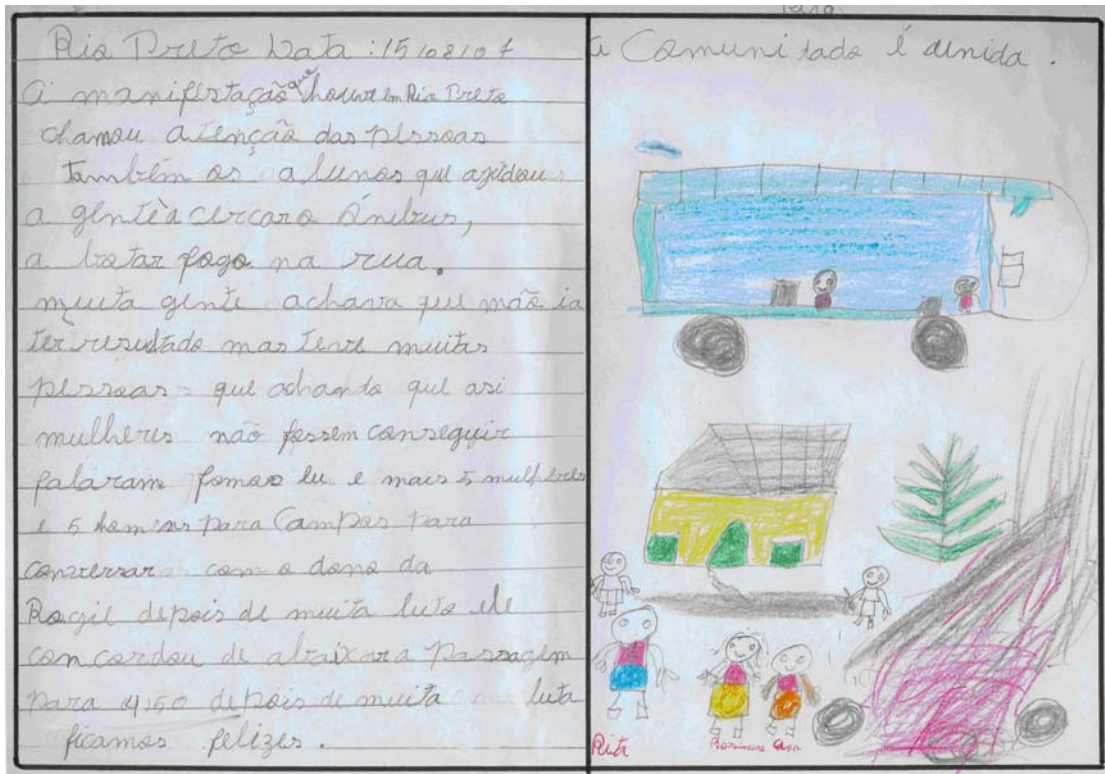 Rio Preto Data: 15/08/07
A manifestação que houve em Rio Preto
chamou atenção das pessoas
também os alunos que ajudou
a gente a cercar o Ônibus,
a botar fogo na rua.
muita gente achava que não ia
ter resultado mas teve muitas
pessoas que achando que asi
mulheres não fossem conseguir
falaram fomos eu e mais 5 mulheres
e 5 homens para Campos para
conversar com o dono da
Rogil depois de muita luta ele
concordou de abaixar a passagem
para 4,50 depois de muita luta
ficamos felizes.
a Comunidade é unida.
Rita
Ana